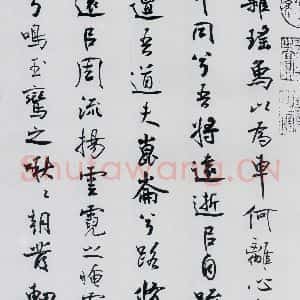 雜瑤象以為車何離心
同兮吾將遠逝㠯自疏
邅吾道夫崑崙兮路脩
遠㠯周流揚雲霓之晻
兮鳴玉鸞之啾啾朝發軔
Shufawang.CN